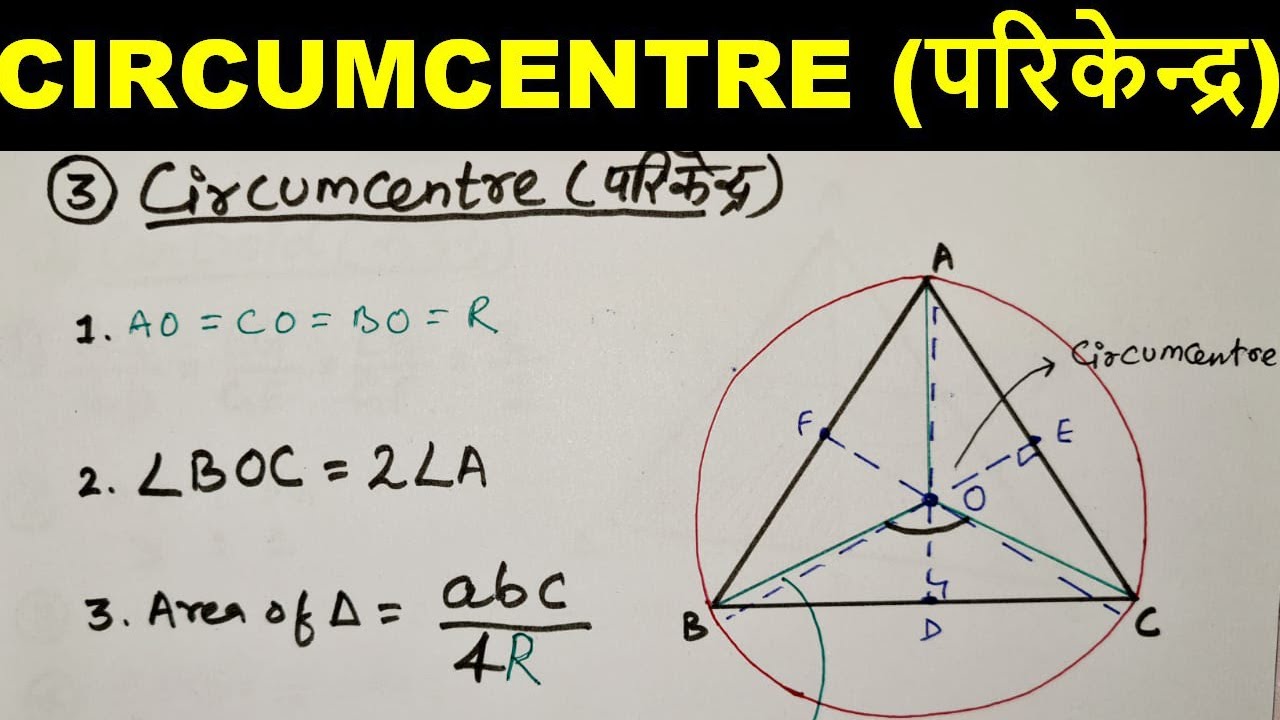 CIRCUMCENTRE (परिकेन्द्र)
③ Circumcentre (परिकेन्द्र)
1. AO = CO = BO = R
2. ∠BOC = 2∠A
3. Area of Δ = abc
4R
A
Circumcentre
F
E
O
B
D
C